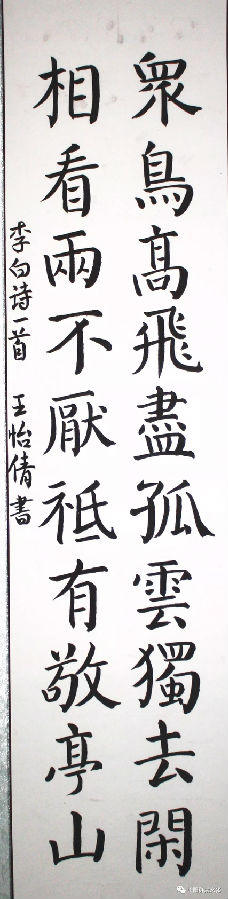 眾鳥髙飛盡孤雲獨去閑
相看兩不厭祗有敬亭山
李白诗一首 王怡倩書